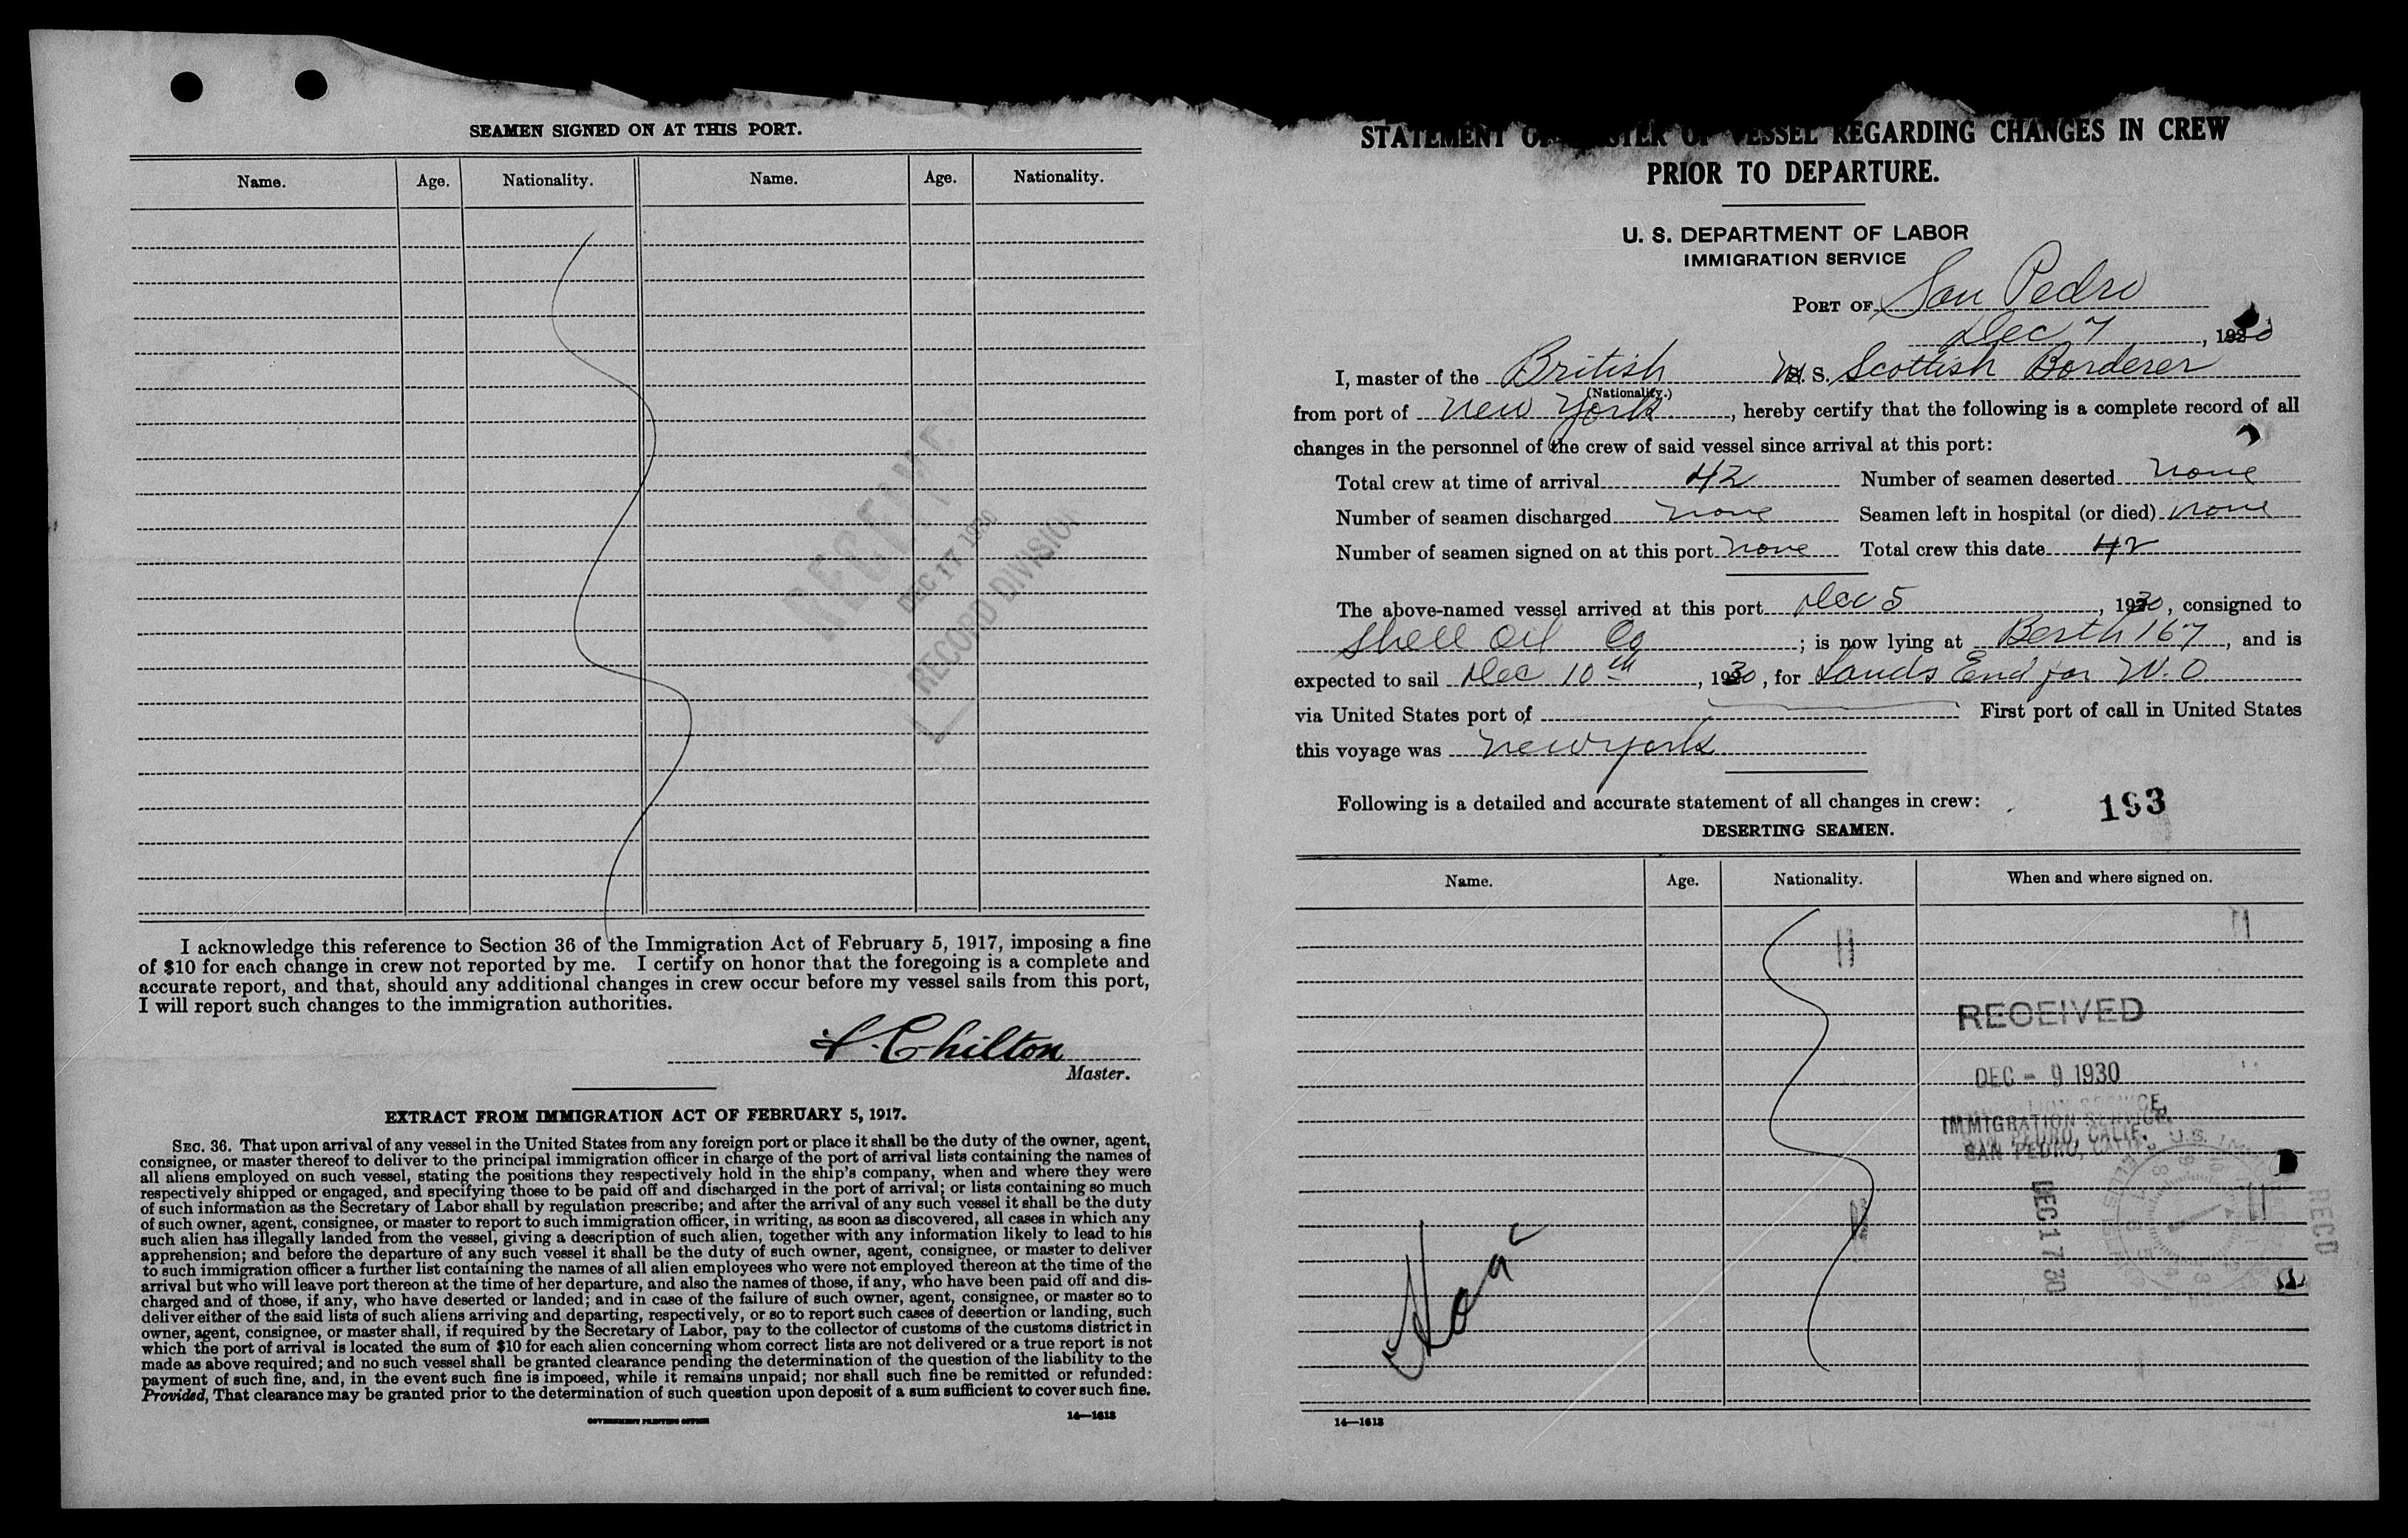 SEAMEN SIGNED ON AT THIS PORT.
Name. Age. Nationality. Name. Age. Nationality.
RECEIVED
DEC 17 1930
RECORD DIVISION
I acknowledge this reference to Section 36 of the Immigration Act of February 5, 1917, imposing a fine
of $10 for each change in crew not reported by me. I certify on honor that the foregoing is a complete and
accurate report, and that, should any additional changes in crew occur before my vessel sails from this port,
I will report such changes to the immigration authorities.
Chilton
Master.
EXTRACT FROM IMMIGRATION ACT OF FEBRUARY 5, 1917.
SEC. 36. That upon arrival of any vessel in the United States from any foreign port or place it shall be the duty of the owner, agent,
consignee, or master thereof to deliver to the principal immigration officer in charge of the port of arrival lists containing the names of
all aliens employed on such vessel, stating the positions they respectively hold in the ship's company, when and where they were
respectively shipped or engaged, and specifying those to be paid off and discharged in the port of arrival; or lists containing so much
of such information as the Secretary of Labor shall by regulation prescribe; and after the arrival of any such vessel it shall be the duty
of such owner, agent, consignee, or master to report to such immigration officer, in writing, as soon as discovered, all cases in which any
such alien has illegally landed from the vessel, giving a description of such alien, together with any information likely to lead to his
apprehension; and before the departure of any such vessel it shall be the duty of such owner, agent, consignee, or master to deliver
to such immigration officer a further list containing the names of all alien employees who were not employed thereon at the time of the
arrival but who will leave port thereon at the time of her departure, and also the names of those, if any, who have been paid off and dis-
charged and of those, if any, who have deserted or landed; and in case of the failure of such owner, agent, consignee, or master so to
deliver either of the said lists of such aliens arriving and departing, respectively, or so to report such cases of desertion or landing, such
owner, agent, consignee, or master shall, if required by the Secretary of Labor, pay to the collector of customs of the customs district in
which the port of arrival is located the sum of $10 for each alien concerning whom correct lists are not delivered or a true report is not
made as above required; and no such vessel shall be granted clearance pending the determination of the question of the liability to the
payment of such fine, and, in the event such fine is imposed, while it remains unpaid; nor shall such fine be remitted or refunded:
Provided, That clearance may be granted prior to the determination of such question upon deposit of a sum sufficient to cover such fine.
GOVERNMENT PRINTING OFFICE 14—1613
STATEMENT OF MASTER OF VESSEL REGARDING CHANGES IN CREW
PRIOR TO DEPARTURE.
U. S. DEPARTMENT OF LABOR
IMMIGRATION SERVICE
PORT OF San Pedro
Dec 7, 1930
I, master of the British M. S. Scottish Borderer
(Nationality.)
from port of New York, hereby certify that the following is a complete record of all
changes in the personnel of the crew of said vessel since arrival at this port:
Total crew at time of arrival 42 Number of seamen deserted none
Number of seamen discharged none Seamen left in hospital (or died) none
Number of seamen signed on at this port none Total crew this date 42
The above-named vessel arrived at this port Dec 5, 1930, consigned to
Shell Oil Co; is now lying at Berth 167, and is
expected to sail Dec 10th, 1930, for Lands End for W.O
via United States port of First port of call in United States
this voyage was New York
Following is a detailed and accurate statement of all changes in crew:
193
DESERTING SEAMEN.
Name. Age. Nationality. When and where signed on.
RECEIVED
DEC - 9 1930
IMMIGRATION SERVICE,
SAN PEDRO, CALIF.
DEC 17 30
RECD
14—1613